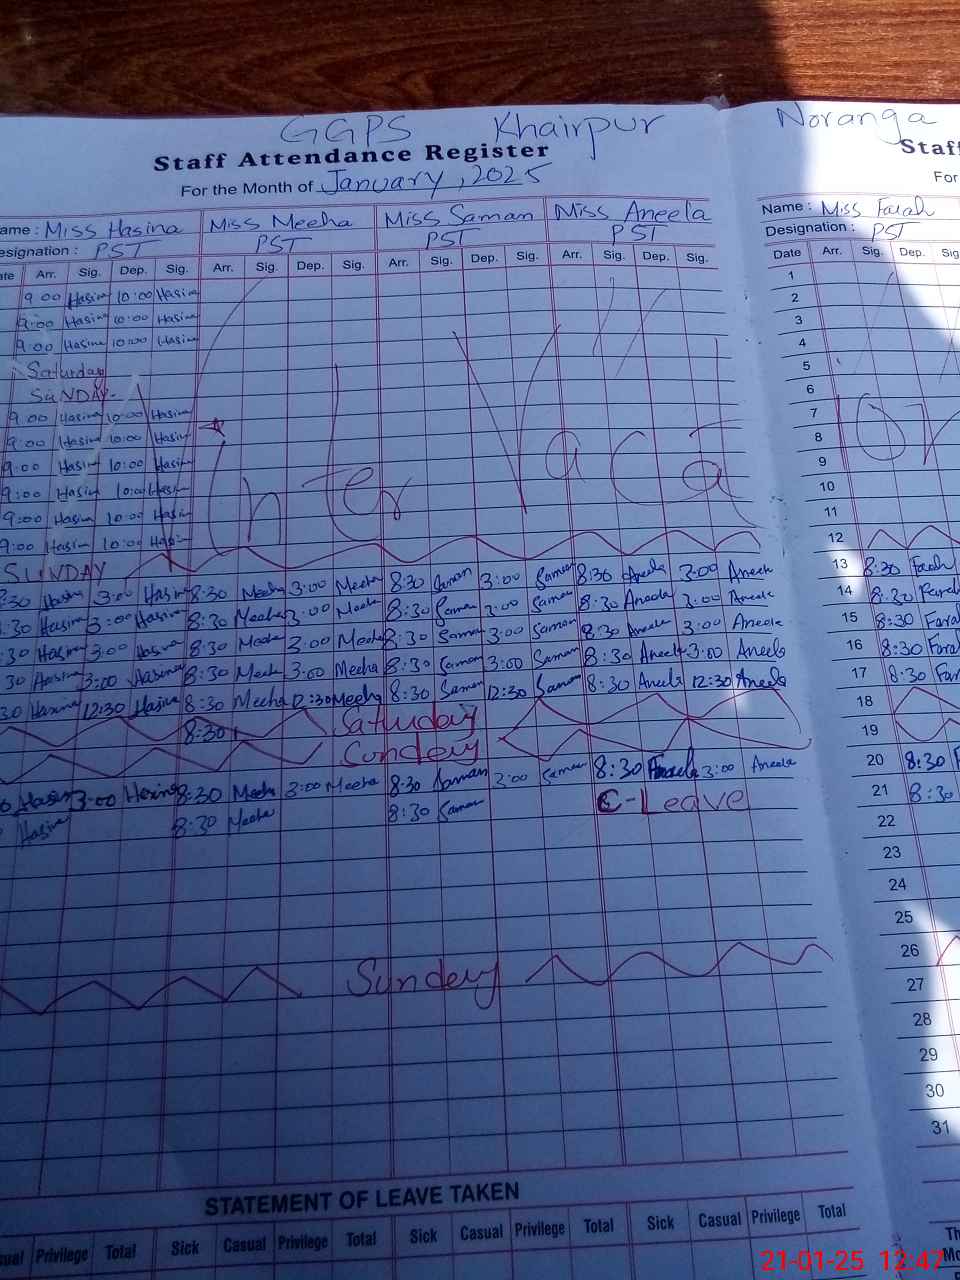 GGPS Khairpur Noranga
Staff Attendance Register
For the Month of January, 2025
ame : Miss Hasina Miss Meeha Miss Saman Miss Aneela
esignation : PST PST PST PST
ate Arr. Sig. Dep. Sig. Arr. Sig. Dep. Sig. Arr. Sig. Dep. Sig. Arr. Sig. Dep. Sig.
9 00 Hasina 10:00 Hasina
9:00 Hasina 10:00 Hasina
9:00 Hasina 10:00 Hasina
Saturday
SUNDAY-
9:00 Hasina 10:00 Hasina
9:00 Hasina 10:00 Hasina
9:00 Hasina 10:00 Hasina
9:00 Hasina 10:00 Hasina
9:00 Hasina 10:00 Hasina
9:00 Hasina 10:00 Hasina
SUNDAY
:30 Hasina 3:00 Hasina 8:30 Meeha 3:00 Meeha 8:30 Saman 3:00 Saman 8:30 Aneela 3:00 Aneela
:30 Hasina 3:00 Hasina 8:30 Meeha 3:00 Meeha 8:30 Saman 3:00 Saman 8:30 Aneela 3:00 Aneela
:30 Hasina 3:00 Hasina 8:30 Meeha 3:00 Meeha 8:30 Saman 3:00 Saman 8:30 Aneela 3:00 Aneela
30 Hasina 3:00 Hasina 8:30 Meeha 3:00 Meeha 8:30 Saman 3:00 Saman 8:30 Aneela 3:00 Aneela
30 Hasina 12:30 Hasina 8:30 Meeha 12:30 Meeha 8:30 Saman 12:30 Saman 8:30 Aneela 12:30 Aneela
8:30 Saturday
Sunday
Hasina 3:00 Hasina 8:30 Meeha 3:00 Meeha 8:30 Saman 3:00 Saman 8:30 3:00 Aneela
Hasina 8:30 Meeha 8:30 Saman C-Leave
Sunday
STATEMENT OF LEAVE TAKEN
sual Privilege Total Sick Casual Privilege Total Sick Casual Privilege Total Sick Casual Privilege Total
Staf
For
Name : Miss Farah
Designation : PST
Date Arr. Sig. Dep. Sig
1
2
3
4
5
6
7
8
9
10
11
12
13 8:30 Farah
14 8:30 Farah
15 8:30 Fara
16 8:30 Fara
17 8:30 Far
18
19
20 8:30 F
21 8:30
22
23
24
25
26
27
28
29
30
31
Th
Mo
21-01-25 12:47